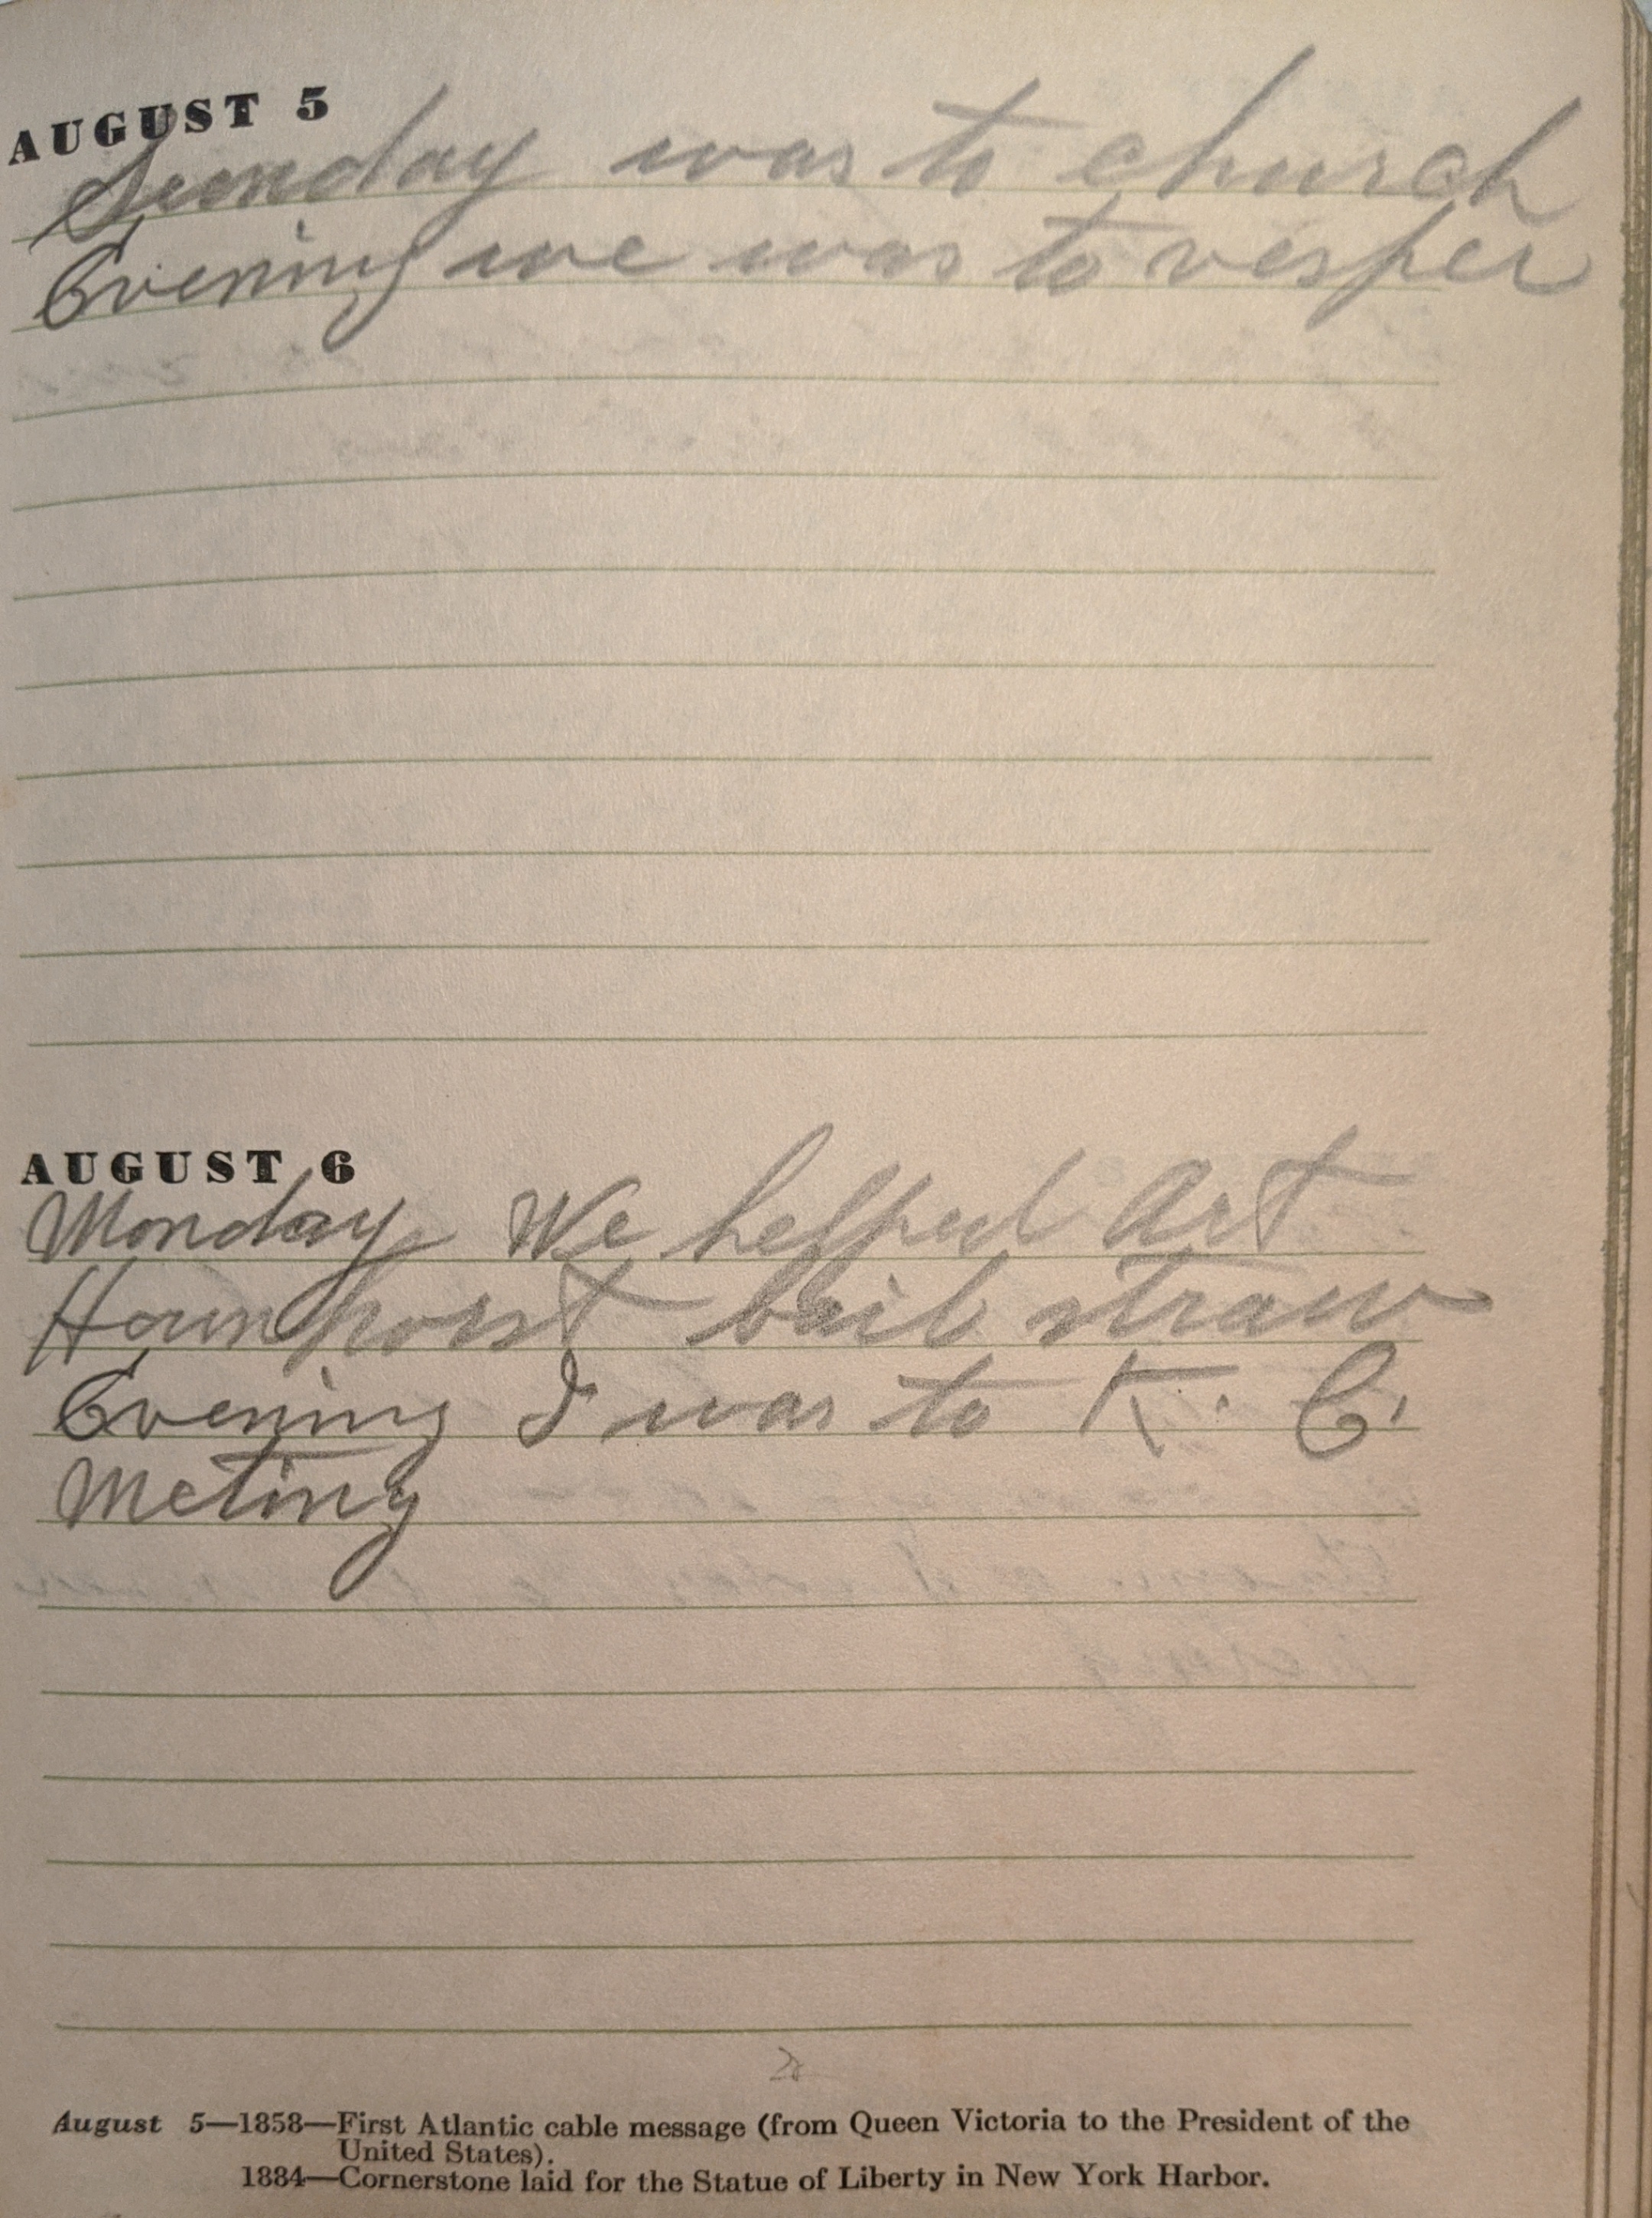 AUGUST 5
Sunday was to church
Evening we was to vesper
AUGUST 6
Monday We helped Art
bail straw
Evening I was to K. C.
Meting
August 5—1858—First Atlantic cable message (from Queen Victoria to the President of the
United States).
1884—Cornerstone laid for the Statue of Liberty in New York Harbor.